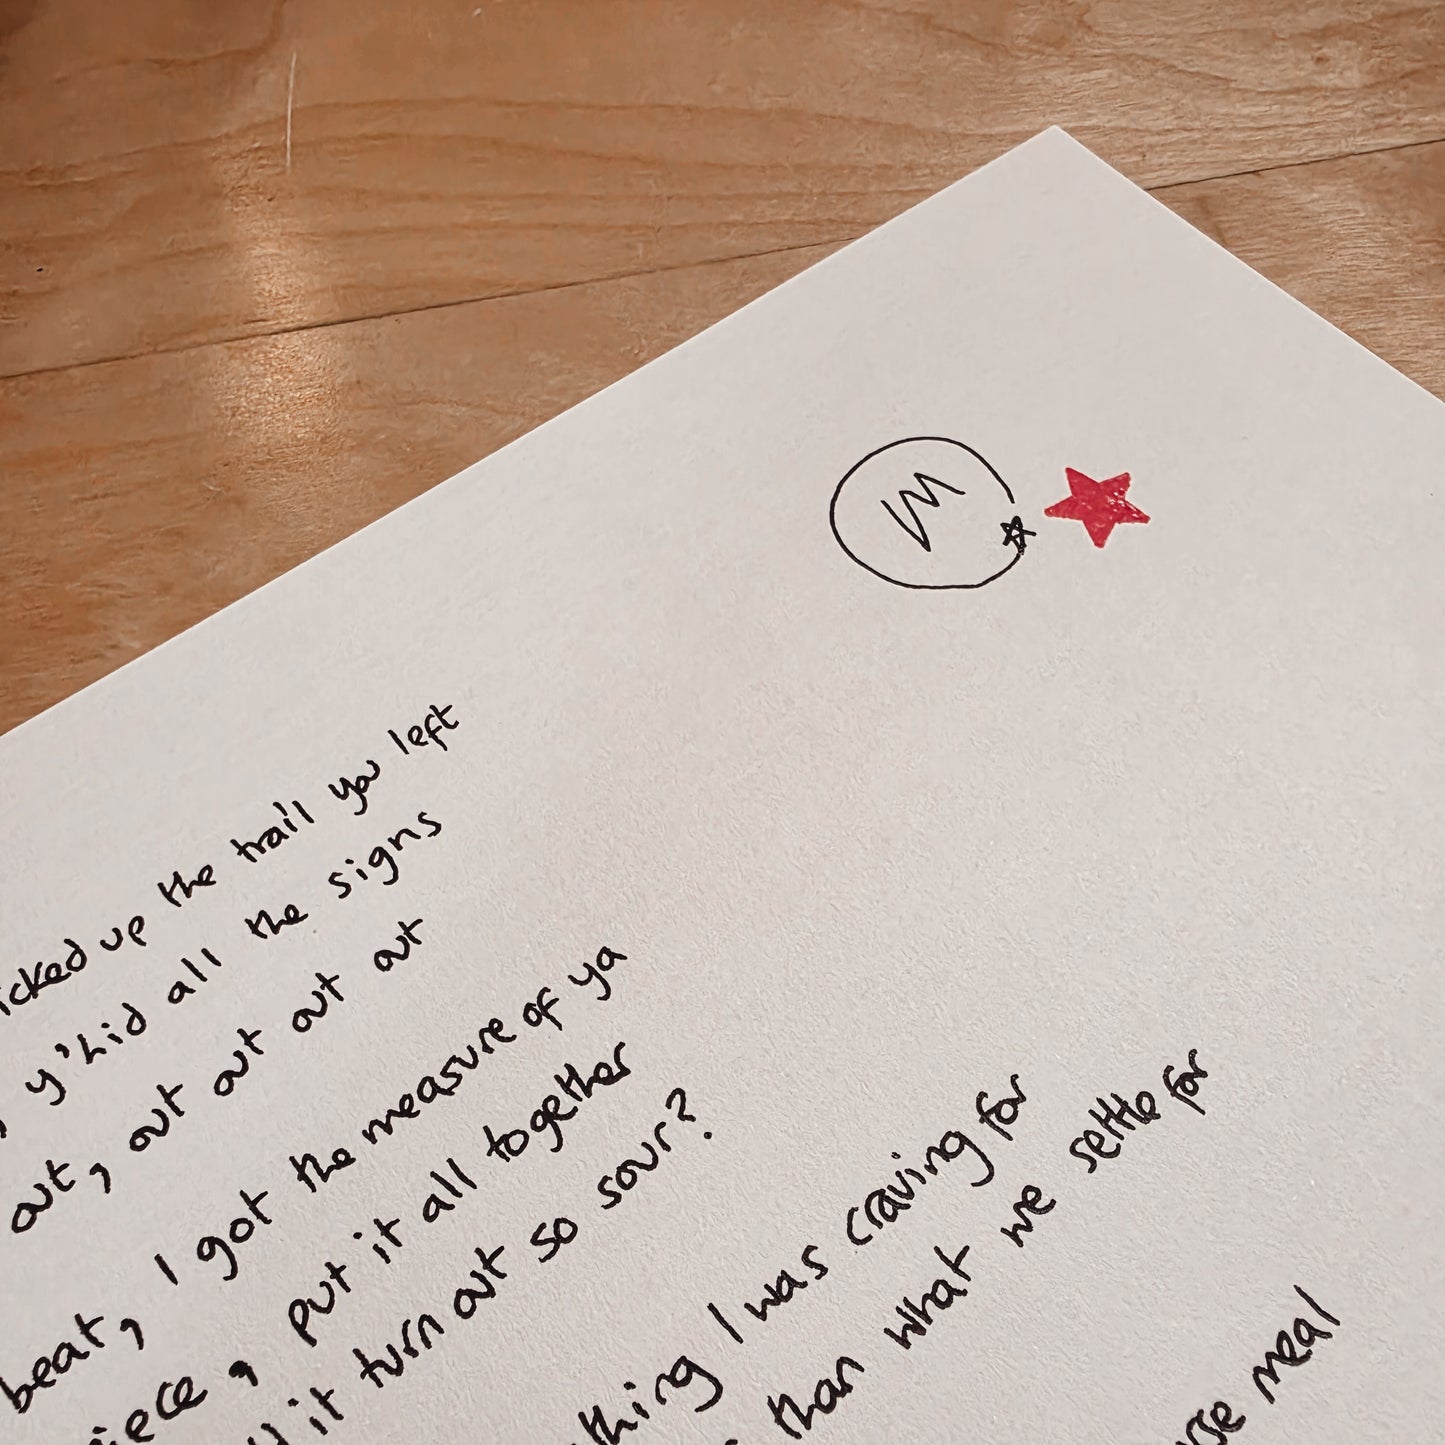 M
icked up the trail you left
, y'hid all the signs
out, out out out out
beat, I got the measure of ya
iece, put it all together
it turn out so sour?
thing I was craving for
than what we settle for
rse meal